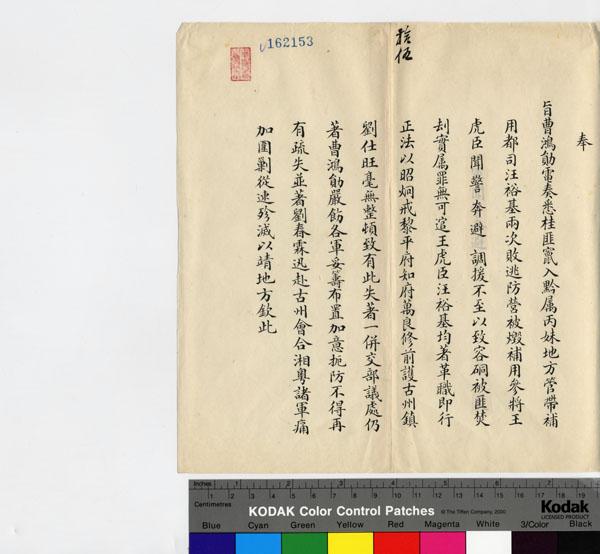 奉
旨曹鴻勛電奏悉桂匪竄入黔属丙妹地方管帶補
用都司汪裕基兩次敗逃防營被燬補用參將王
虎臣聞警奔避調援不至以致容硐被匪焚
刦實属罪無可逭王虎臣汪裕基均著革職即行
正法以昭炯戒黎平府知府萬良修前護古州鎮
劉仕旺毫無整頓致有此失著一併交部議處仍
著曹鴻勛嚴飭各軍妥籌布置加意扼防不得再
有疏失並著劉春霖迅赴古州會合湘粤諸軍痛
加圍剿從速殄滅以靖地方欽此
拾伍
162153
Inches 1 2 3 4 5 6 7
Centimetres 1 2 3 4 5 6 7 8 9 10 11 12 13 14 15 16 17 18
KODAK Color Control Patches
© The Tiffen Company, 2000
Kodak
LICENSED PRODUCT
Blue Cyan Green Yellow Red Magenta White 3/Color Black